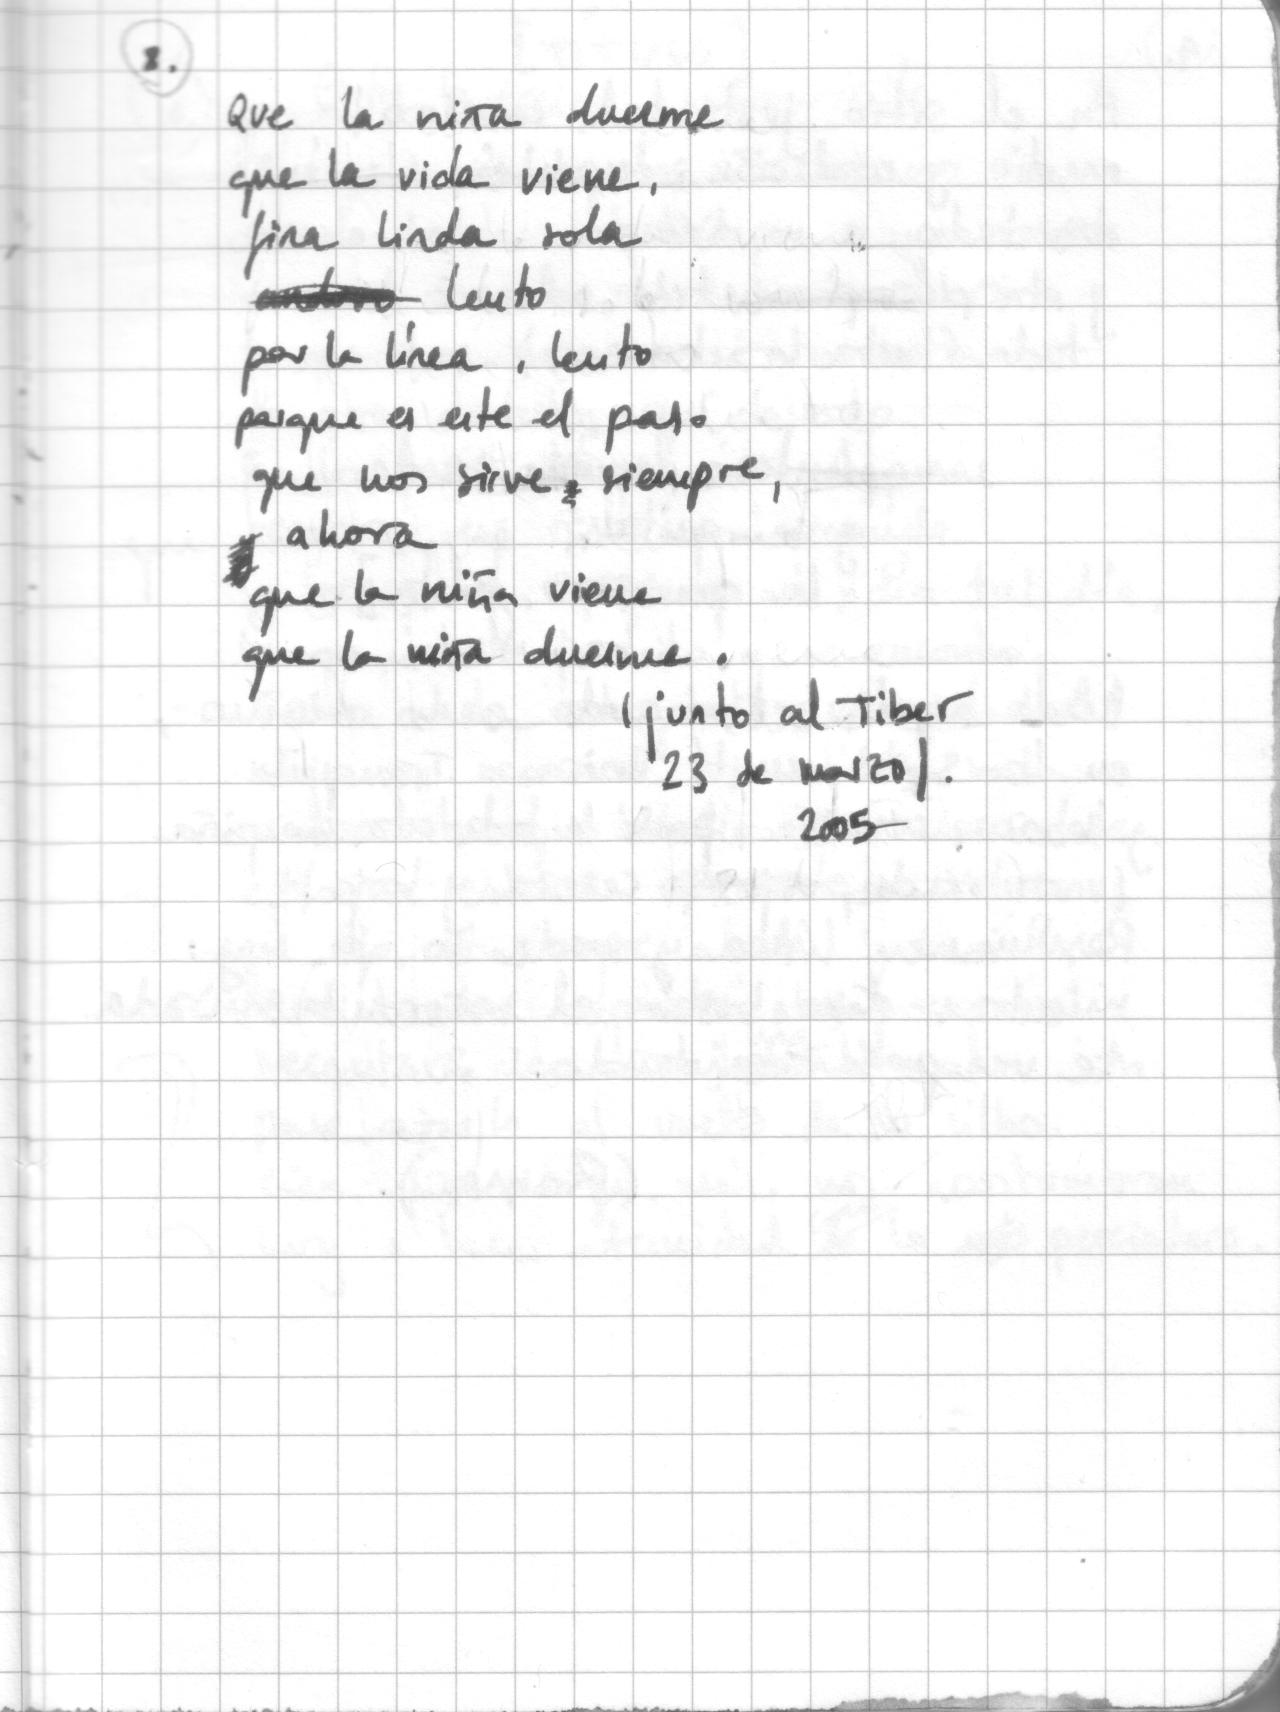 Que la niña duerme
que la vida viene,
fina linda sola
lento
por la línea, lento
porque es este el paso
que nos sirve siempre,
ahora
que la niña viene
que la niña duerme.
(junto al Tiber
23 de marzo).
2005